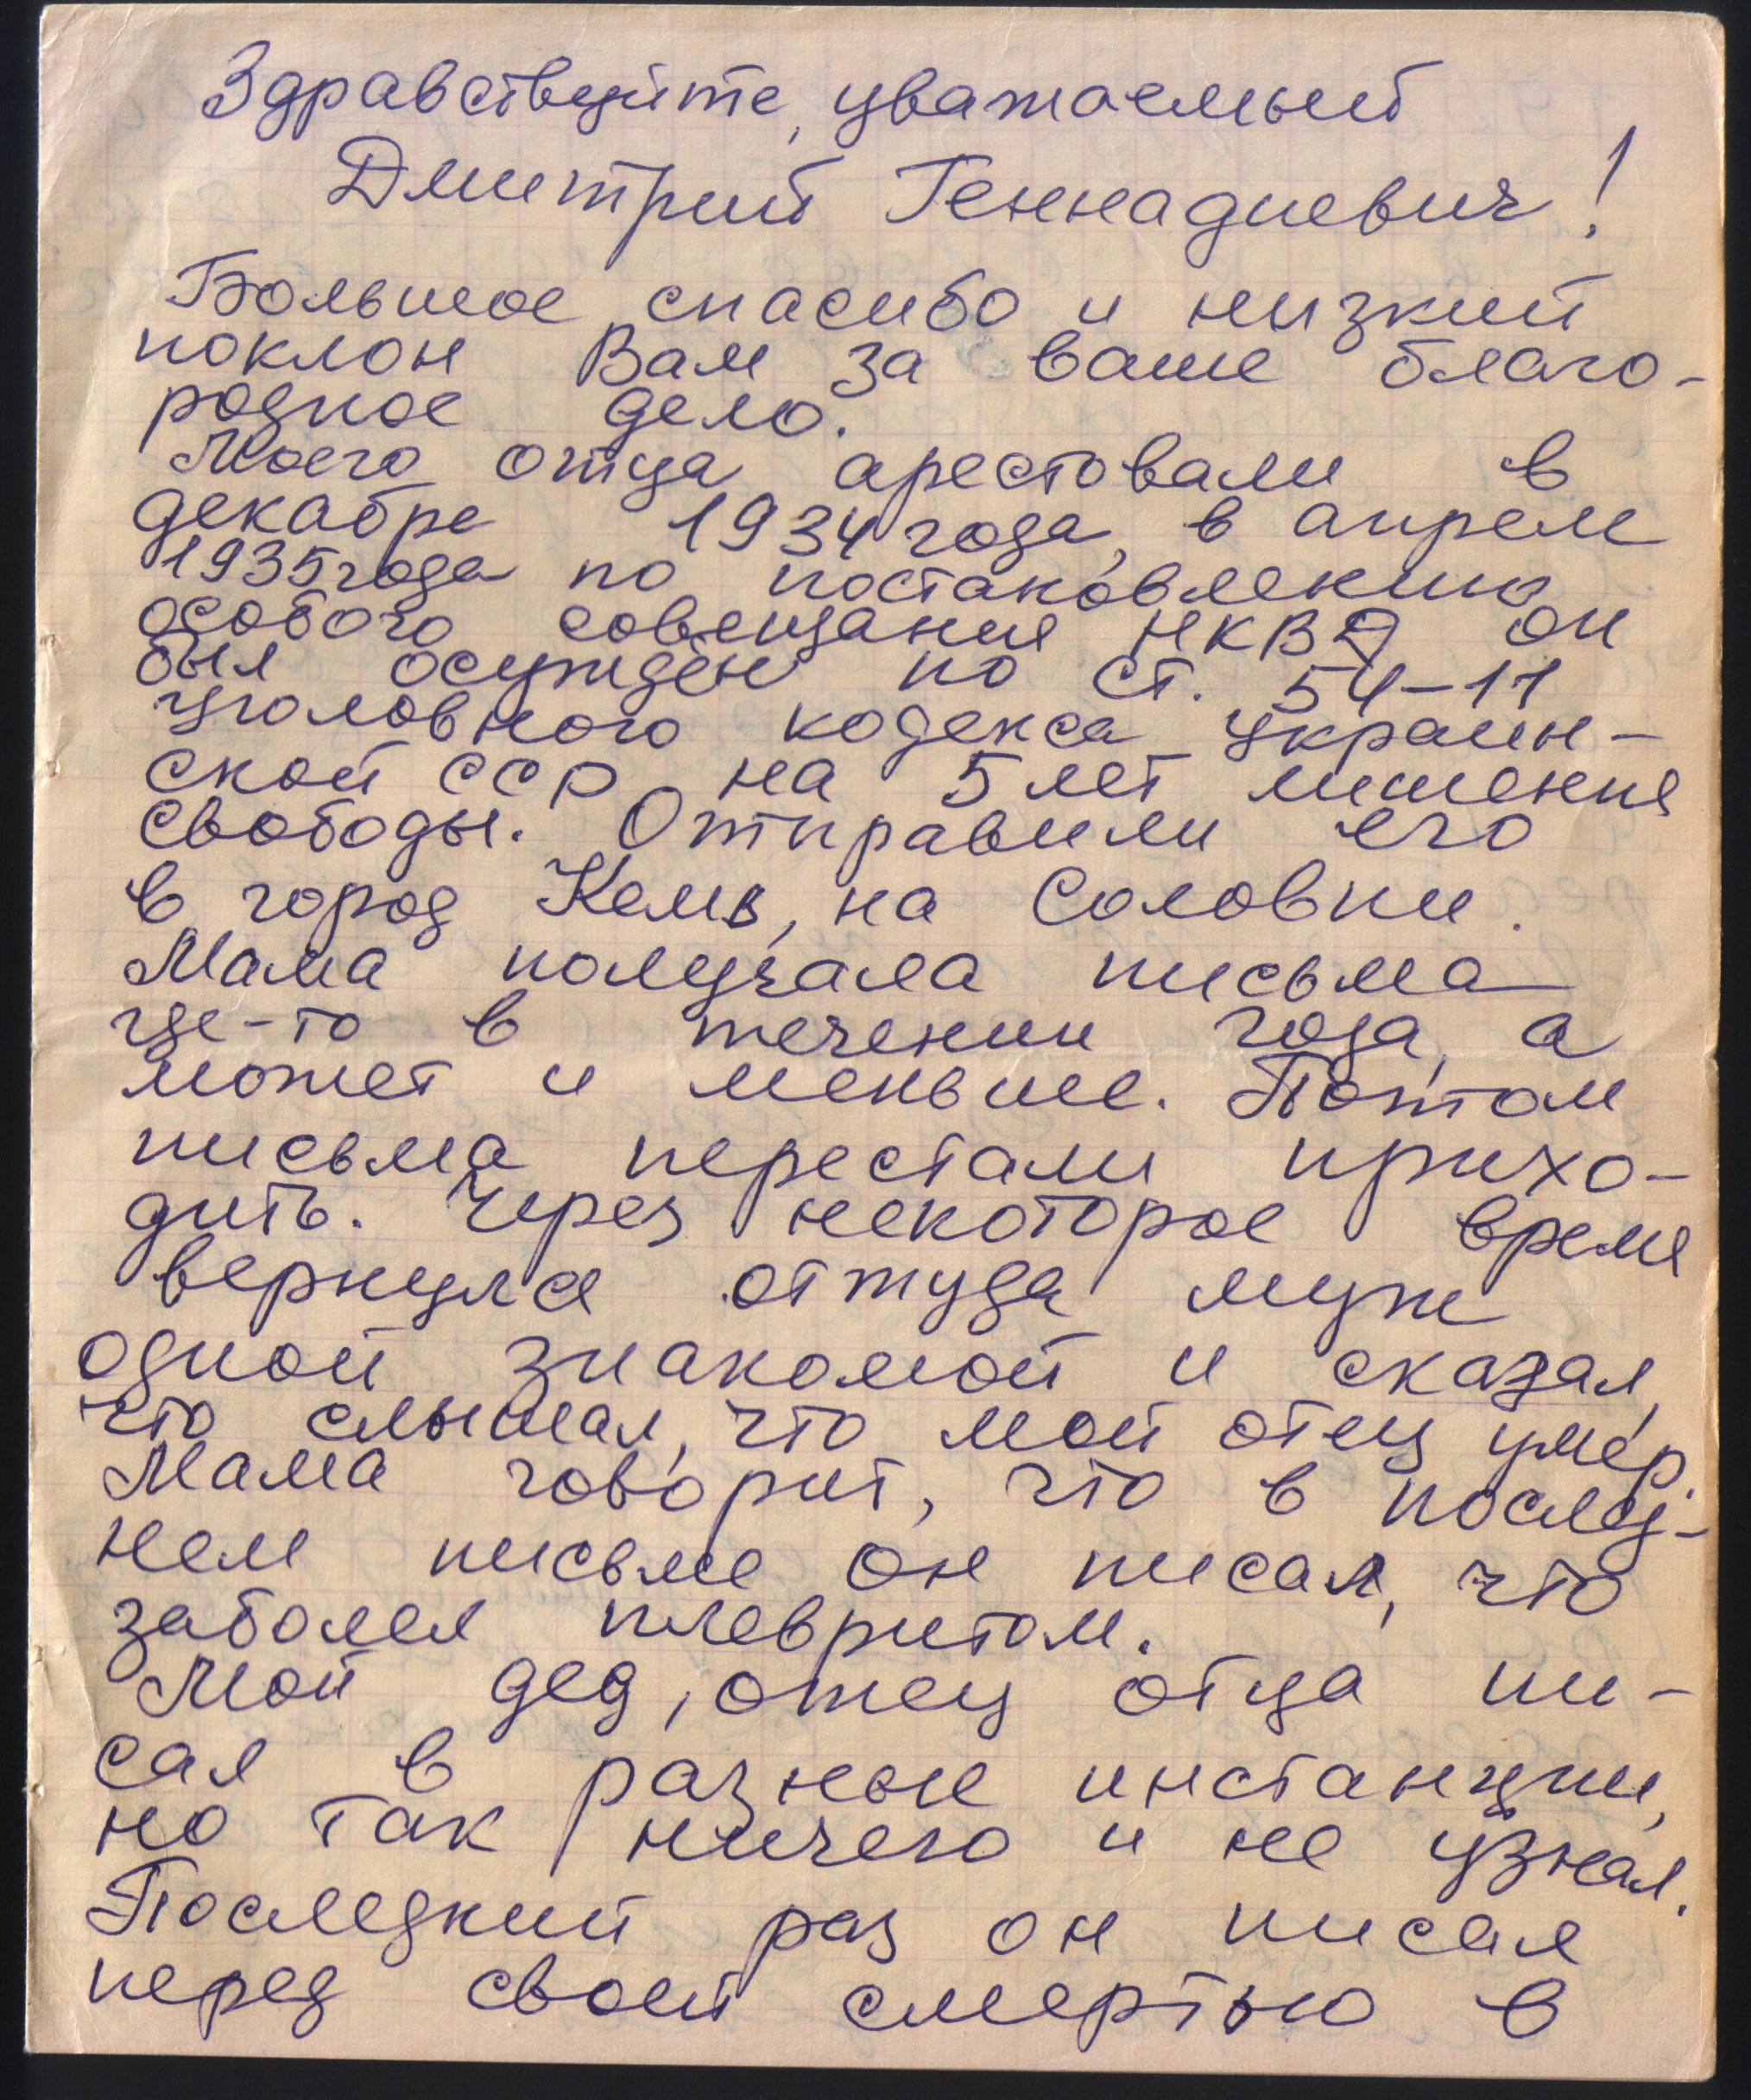 Здравствуйте, уважаемый
Дмитрий Геннадиевич!
Большое спасибо и низкий
поклон Вам за ваше благо-
родное дело.
Моего отца арестовали в
декабре 1934 года, в апреле
1935 года по постановлению
особого совещания НКВД он
был осуждён по ст. 54-11
уголовного кодекса Украин-
ской ССР на 5 лет лишения
свободы. Отправили его
в город Кемь, на Соловки.
Мама получала письма
где-то в течении года, а
может и меньше. Потом
письма перестали прихо-
дить. Через некоторое время
вернулся оттуда муж
одной знакомой и сказал,
что слышал, что мой отец умер.
Мама говорит, что в послед-
нем письме он писал, что
заболел плевритом.
Мой дед, отец отца пи-
сал в разные инстанции,
но так ничего и не узнал.
Последний раз он писал
перед своей смертью в